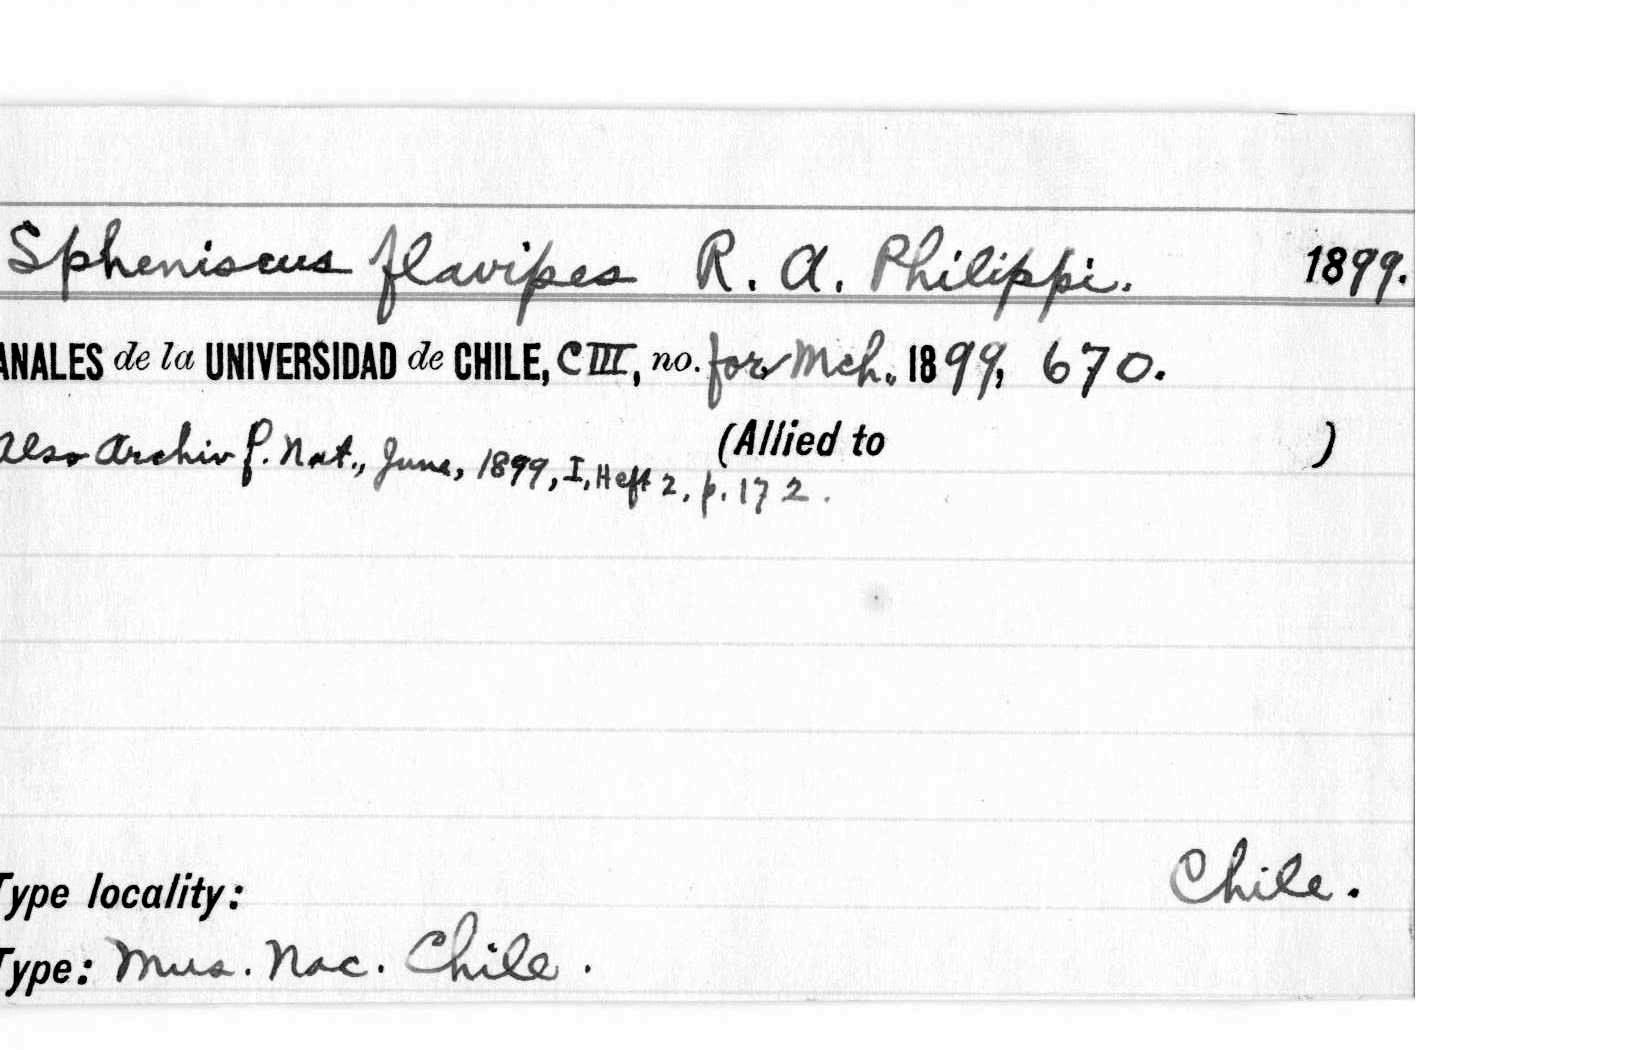 Spheniscus flavipes R. A. Philippi. 1899.
ANALES de la UNIVERSIDAD de CHILE, CIII, no. for Mch. 1899, 670.
(Allied to )
Also Archiv f. Nat., June, 1899, I, Heft 2, p. 172.
Chile.
Type locality:
Type: Mus. Nac. Chile.